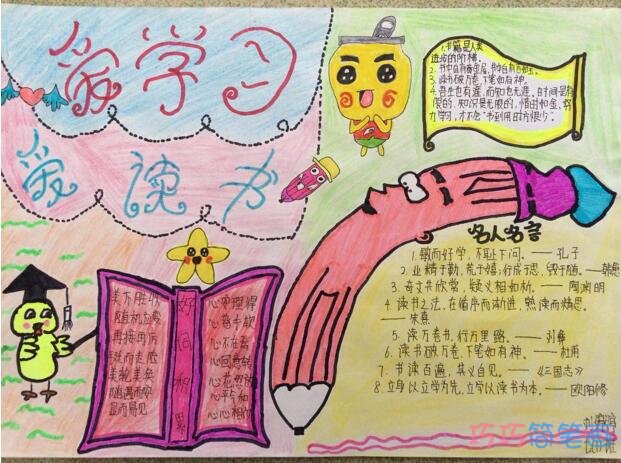 爱学习
爱读书
1.书籍是人类
进步的阶梯。
3.读书破万卷,下笔如有神。
4.吾生也有涯,而知也无涯,时间是有
限的,知识是无限的,惜时如金,努
力学习,才不会"书到用时方恨少"。
名人名言
1.敏而好学,不耻下问。——孔子
2.业精于勤,荒于嬉,行成于思,毁于随。——韩愈
3.奇文共欣赏,疑义相如析。——陶渊明
4.读书之法,在循序而渐进,熟读而精思。
——朱熹
5.读万卷书,行万里路。——刘彝
6.读书破万卷,下笔如有神。——杜甫
7.书读百遍,其义自见。——《三国志》
8.立身以立学为先,立学以读书为本。——欧阳修
好词积累
美不胜收
随机应变
再接再厉
美轮美奂
随遇而安
显而易见
心安理得
心慈手软
心不在焉
心回意转
心花怒放
心平气和
心心相印
巧巧简笔画